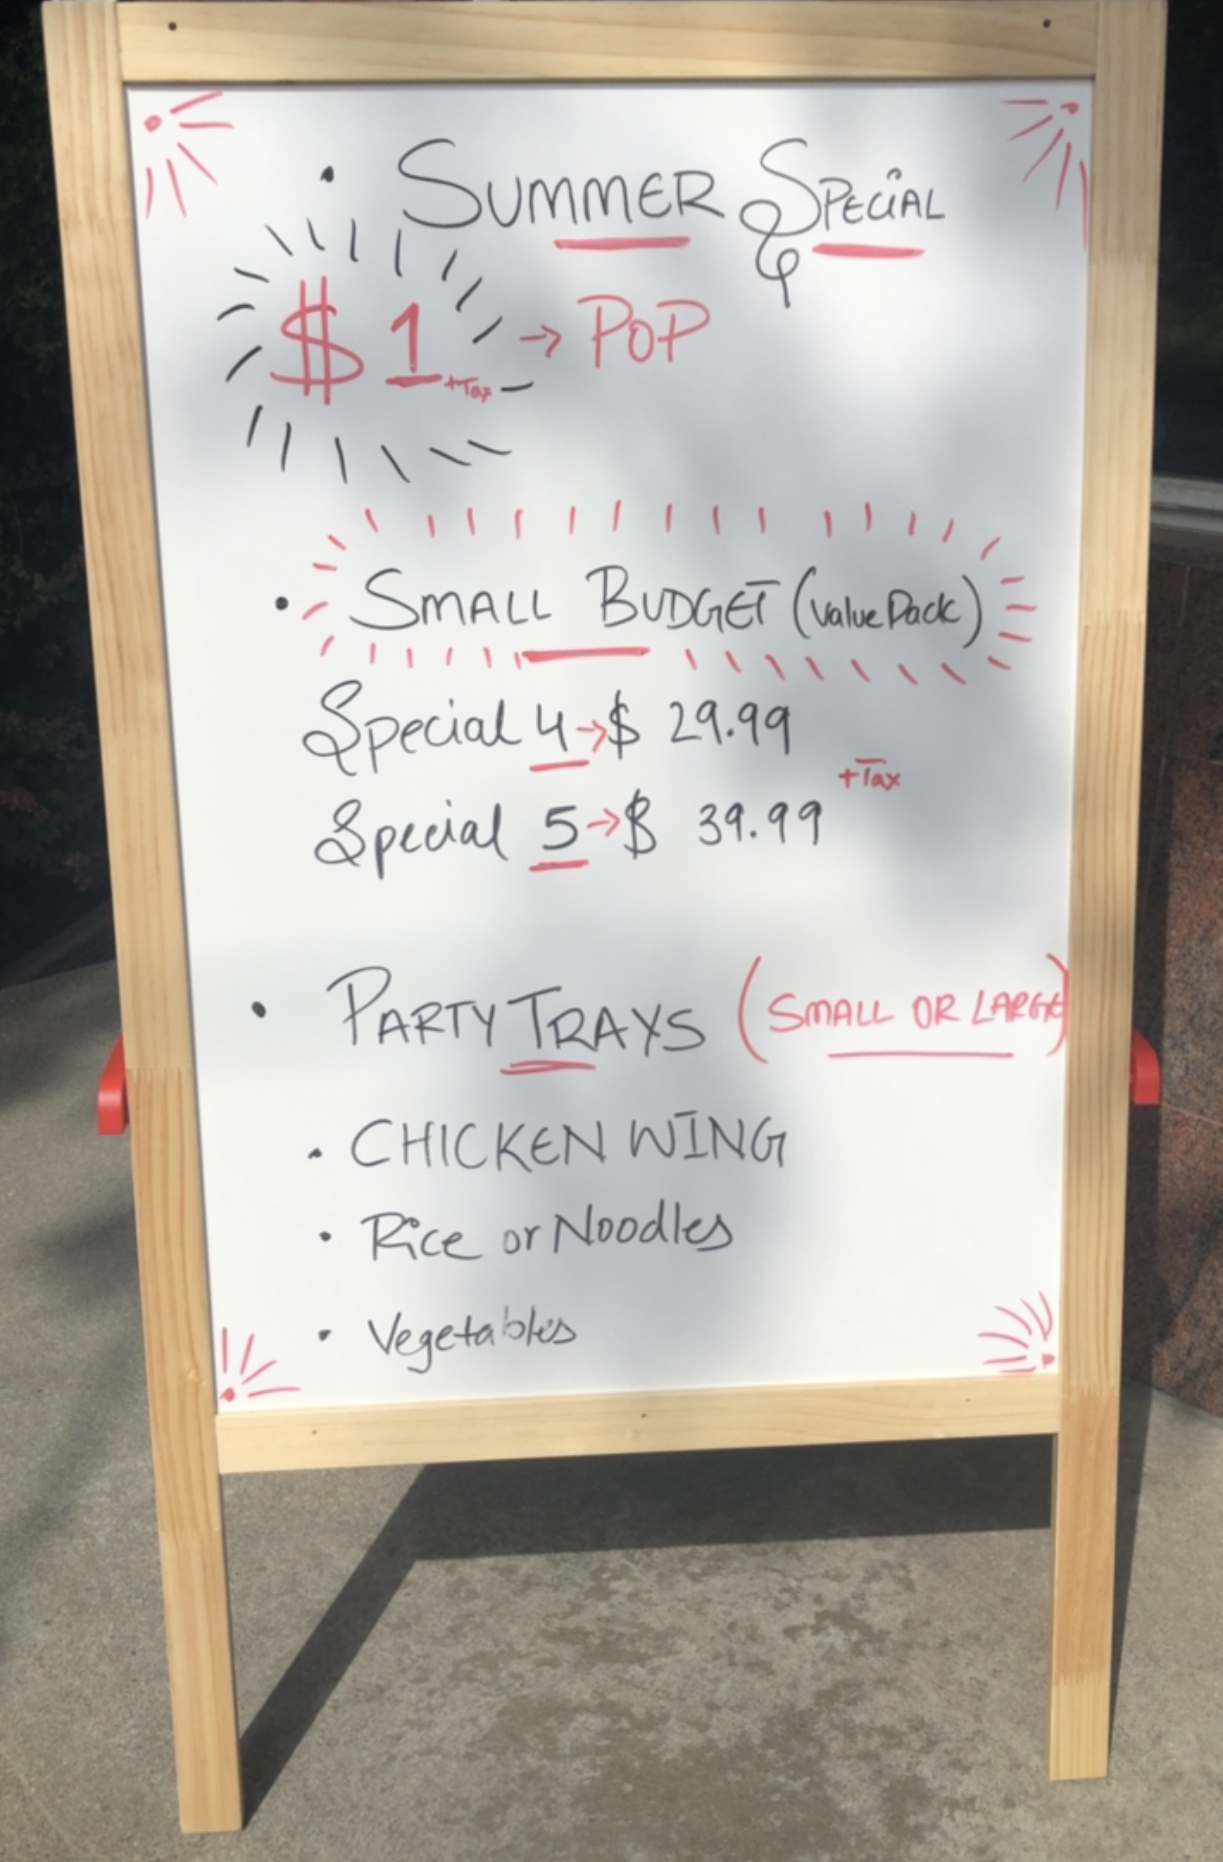 • SUMMER SPECIAL
$1 +Tax → POP
• SMALL BUDGET (Value Pack)
Special 4 → $ 29.99
+Tax
Special 5 → $ 39.99
• PARTY TRAYS (SMALL OR LARGE)
• CHICKEN WING
• Rice or Noodles
• Vegetables